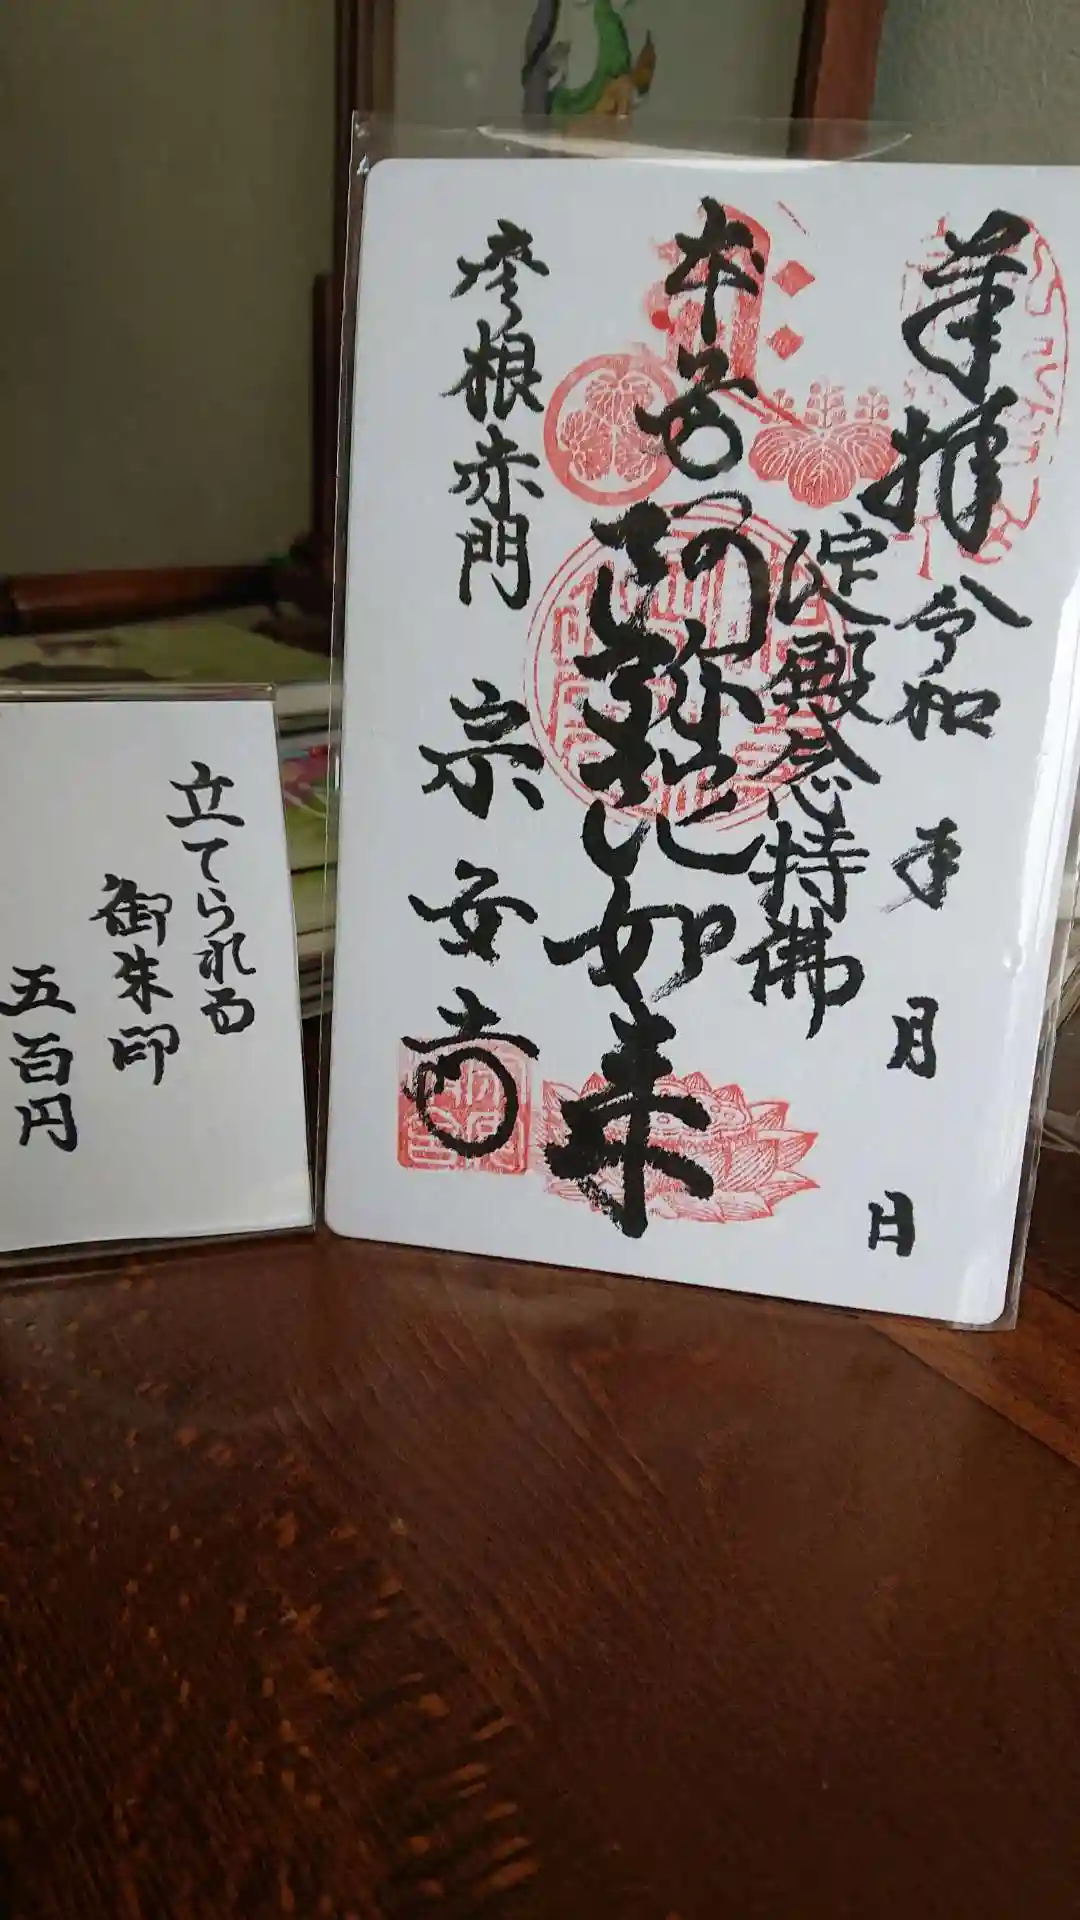 奉拝
令和 年 月 日
淀殿念持佛
本尊
阿弥陀如来
彦根赤門
宗安寺
立てられる
御朱印
五百円